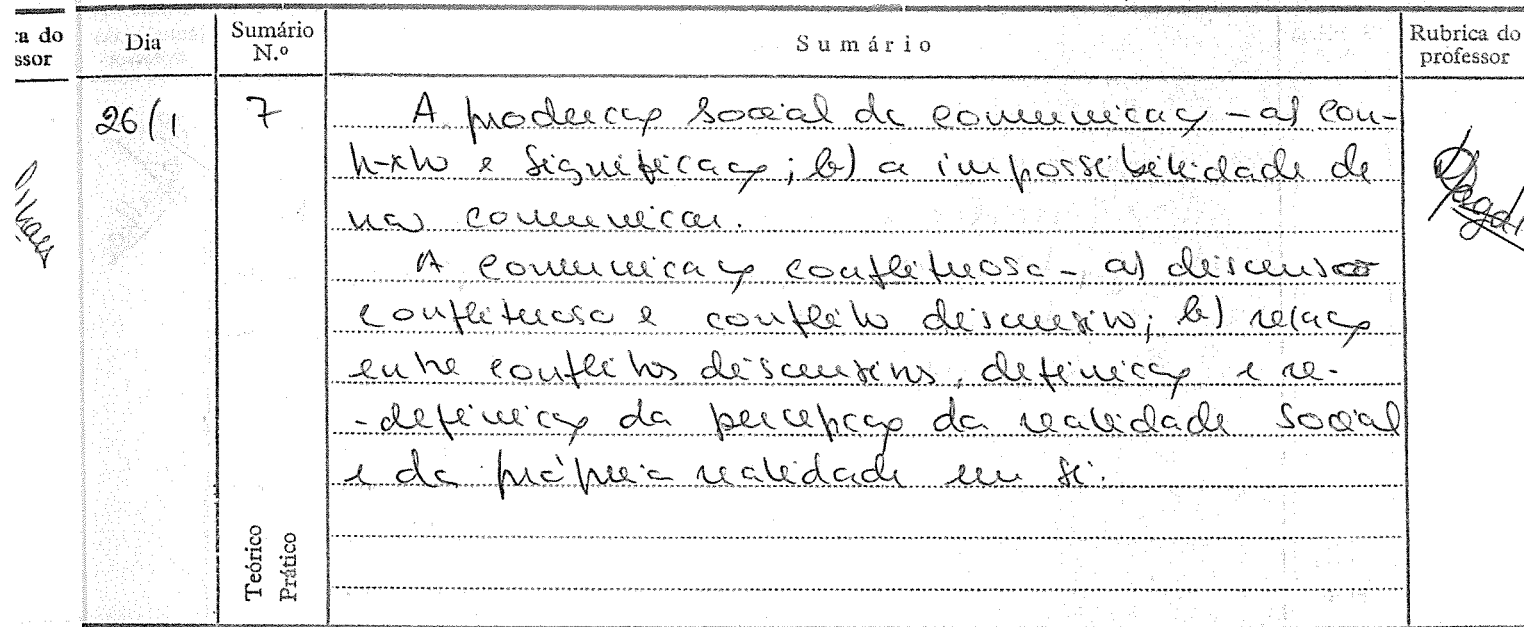 ra do
ssor
Dia
Sumário
N.º
Sumário
Rubrica do
professor
26/1
7
A produção social da comunicação - a) con-
texto e significação; b) a impossibilidade de
não comunicar.
A comunicação conflituosa - a) discurso
conflituoso e conflito discursivo; b) relação
entre conflitos discursivos, definição e re-
-definição da percepção da realidade social
e da própria realidade em si.
Teórico
Prático